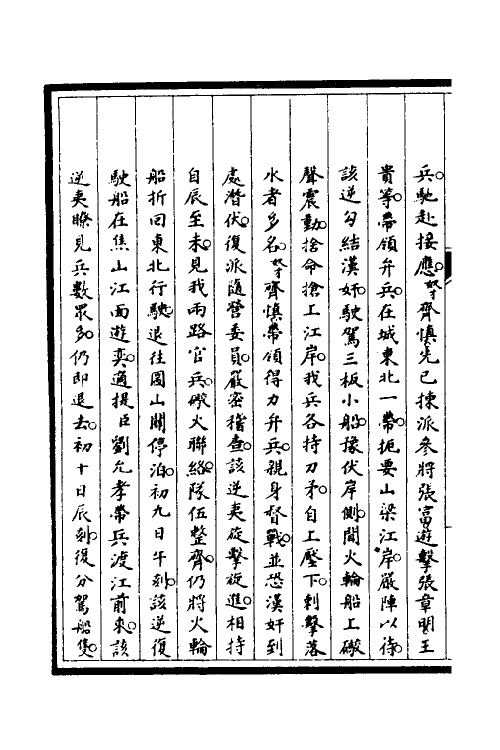 兵。馳赴接應。奴才齊慎先已揀派參將張富遊擊張章明王
貴等。帶領弁兵。在城東北一帶。扼要山梁江岸。嚴陣以待。
該逆勾結漢奸。駛駕三板小船。擁伏岸側。聞火輪船上礮
聲震動。捨命搶上江岸。我兵各持刀矛。自上壓下。刺擊落
水者多名。奴才齊慎帶領得力弁兵。親身督戰。並恐漢奸到
處潛伏。復派隨營委員。嚴密稽查。該逆夷旋擊旋進。相持
自辰至未。見我兩路官兵。礮火聯絡。隊伍整齊。仍將火輪
船折回東北行駛。退往圌山關停泊。初九日午刻。該逆復
駛船在焦山江面遊奕。適提臣劉允孝帶兵渡江前來。該
逆夷瞭見兵數眾多。仍即退去。初十日辰刻。復分駕船隻。